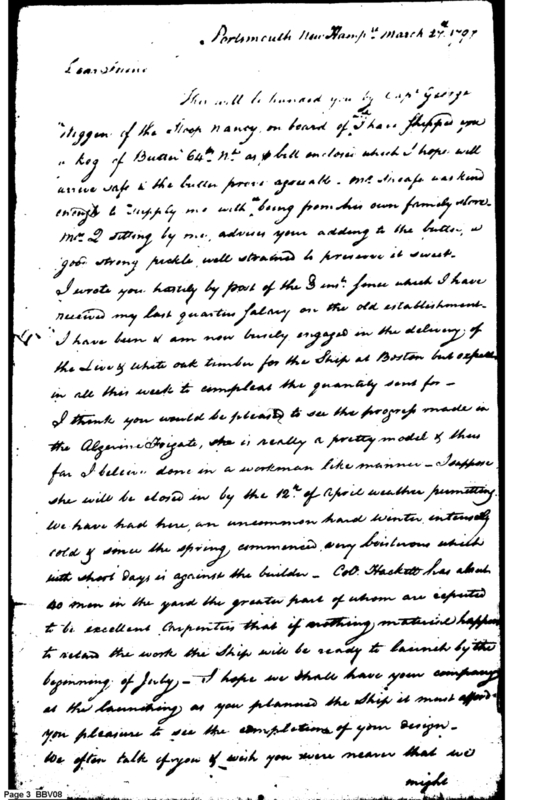 Portsmouth New Hampr. March 27th. 1797
Dear Friend
This will be handed you by Capt. George
of the Sloop Nancy, on board of whom I have shipped you
a keg of Butter 64 lb Nt. as bill enclosed which I hope will
arrive safe & the butter prove agreeable. Mr. was kind
enough to supply me with it being from his own family store.
Mrs. sitting by me, advises your adding to the butter, a
good strong pickle well strained to preserve it sweet.
I wrote you by post of the 8 inst. since which I have
received my last quarters salary on the old establishment.
I have been & am now busily engaged in the delivery of
the Live & white oak timber for the Ship at Boston but expect
in all this week to compleat the quantity sent for —
I think you would be pleased to see the progress made in
the Algerine Frigate, she is really a pretty model & thus
far I believe done in a workman like manner — I suppose
she will be closed in by the 12th. of April weather permitting.
We have had here, an uncommon hard winter, intensely
cold & since the spring commenced, very boisterous which
with short days is against the builder — Colo. Hackett has about
40 men in the yard the greater part of whom are reputed
to be excellent Carpenters that if nothing material happens
to retard the work the Ship will be ready to launch by the
beginning of July — I hope we shall have your company
at the launching as you planned the Ship it must afford
you pleasure to see the completion of your design —
We often talk of you & wish you were nearer that we
might
Page 3 BBV08